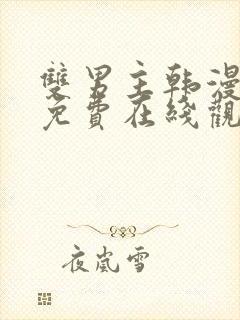 雙男主韩漫
免費在綫觀
夜嵐雪